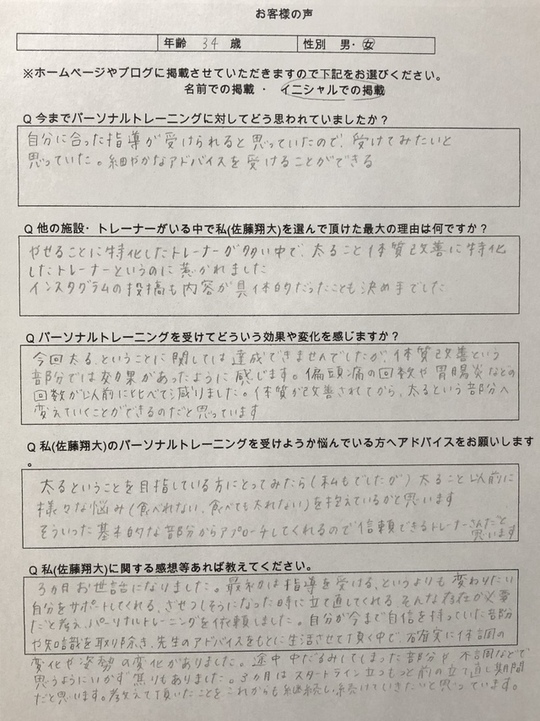 お客様の声
年齢 34 歳 性別 男・女
※ホームページやブログに掲載させていただきますので下記をお選びください。
名前での掲載 ・ イニシャルでの掲載
Q 今までパーソナルトレーニングに対してどう思われていましたか？
自分に合った指導が受けられると思っていたので、受けてみたいと
思っていた。細やかなアドバイスを受けることができる
Q 他の施設・トレーナーがいる中で私(佐藤翔大)を選んで頂けた最大の理由は何ですか？
やせることに特化したトレーナーが多い中で、太ること体質改善に特化
したトレーナーというのに惹かれました
インスタグラムの投稿も内容が具体的だったことも決め手でした
Q パーソナルトレーニングを受けてどういう効果や変化を感じますか？
今回太る、ということに関しては達成できませんでしたが、体質改善という
部分では効果があったように感じます。偏頭痛の回数や胃腸炎などの
回数が以前に比べて減りました。体質が改善されてから、太るという部分へ
変えていくことができるのだと思っています
Q 私(佐藤翔大)のパーソナルトレーニングを受けようか悩んでいる方へアドバイスをお願いします
。
太るということを目指している方にとってみたら(私もでしたが)太ること以前に
様々な悩み(食べれない、食べても太れない)を抱えているかと思います
そういった基本的な部分からアプローチしてくれるので信頼できるトレーナーさんだと
思います
Q 私(佐藤翔大)に関する感想等あれば教えてください。
3カ月お世話になりました。最初は指導を受ける、というよりも変わりたい
自分をサポートしてくれる、ざせつしそうになった時に立て直してくれる そんな存在が必要
だと考え、パーソナルトレーニングを依頼しました。自分が今まで自信を持っていた部分
や知識を取り除き、先生のアドバイスをもとに生活させて頂く中で、確実に体調の
変化や姿勢の変化がありました。途中中だるみしてしまった部分や不調などで
思うようにいかず焦りもありました。3カ月はスタートライン立つもっと前の立て直し期間
だと思います。教えて頂いたことをこれからも継続し続けていきたいと思っています。